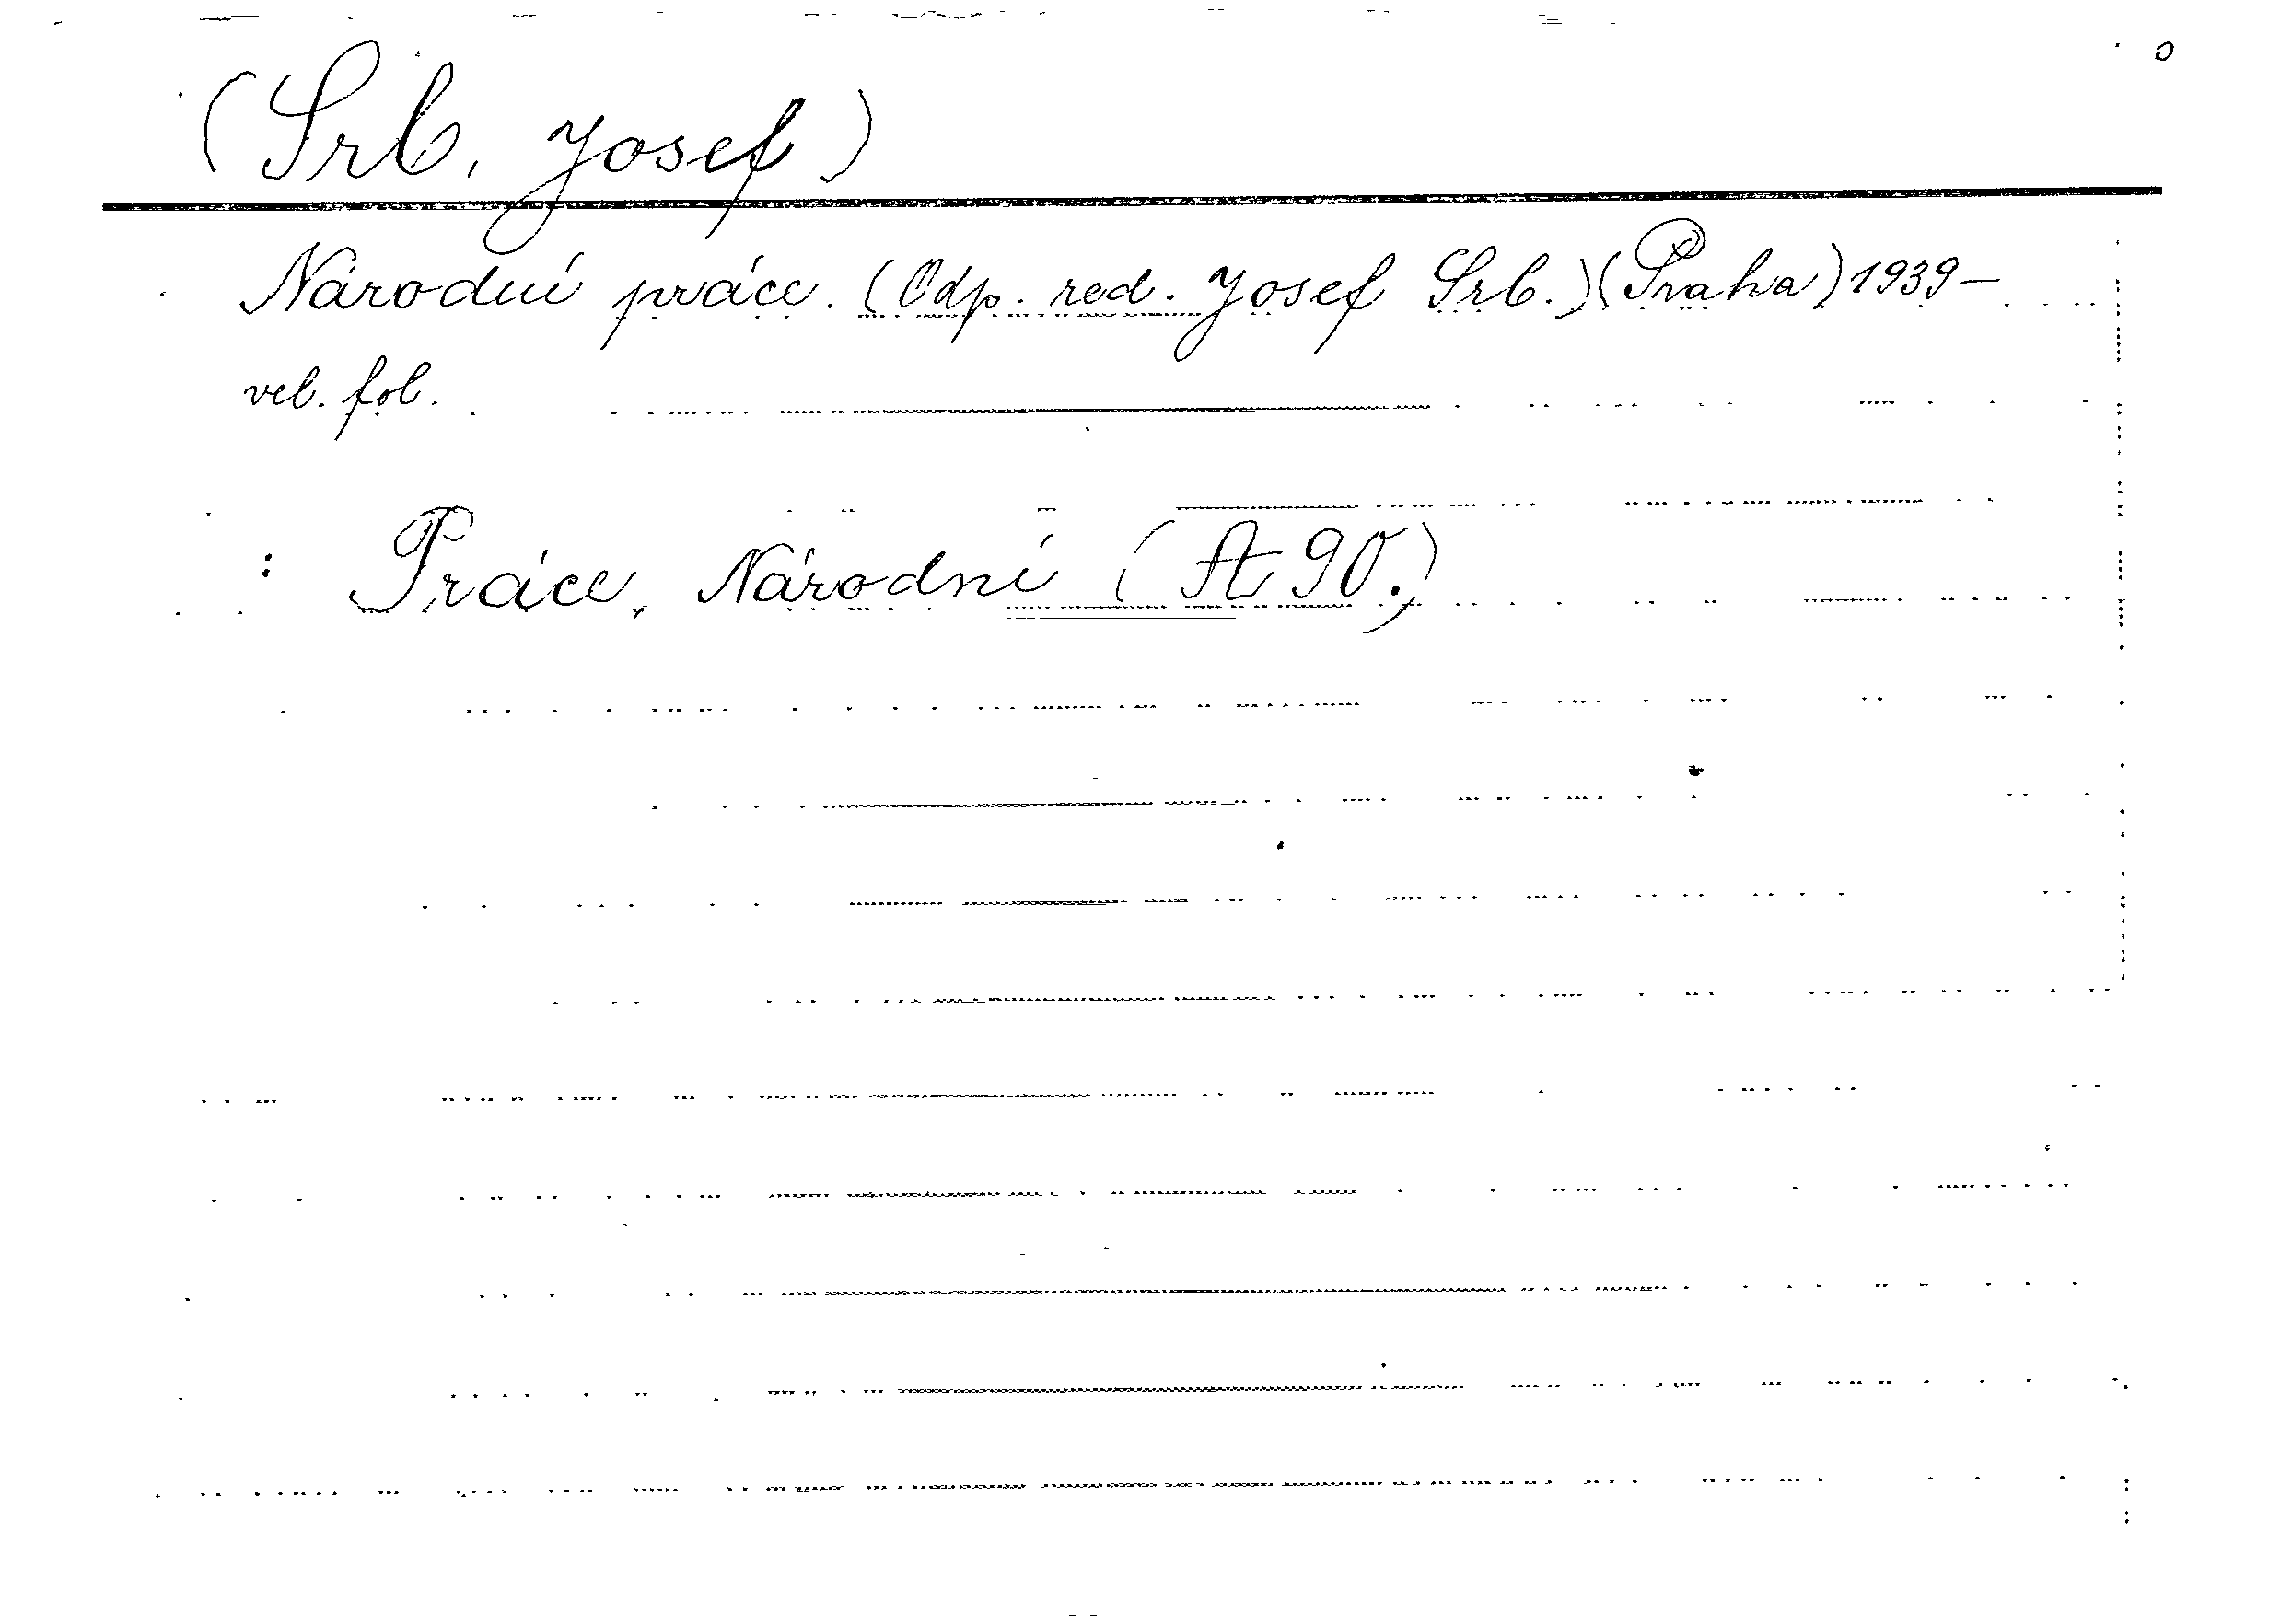 (Srb, Josef)
Národní práce. (Odp. red. Josef Srb.) (Praha) 1939—
vel. fol.
: Práce, Národní (A 90.)